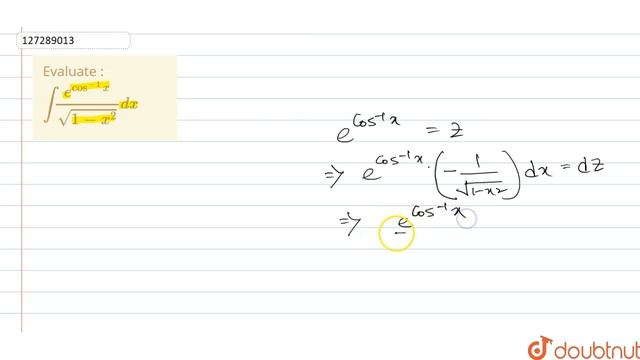 127289013
Evaluate :
∫ e^{cos⁻¹ x} / √(1 − x²) dx
e^{cos⁻¹x} = z
⇒ e^{cos⁻¹x} · (− 1/√(1-x2)) dx = dz
⇒ e^{cos⁻¹x}
doubtnut